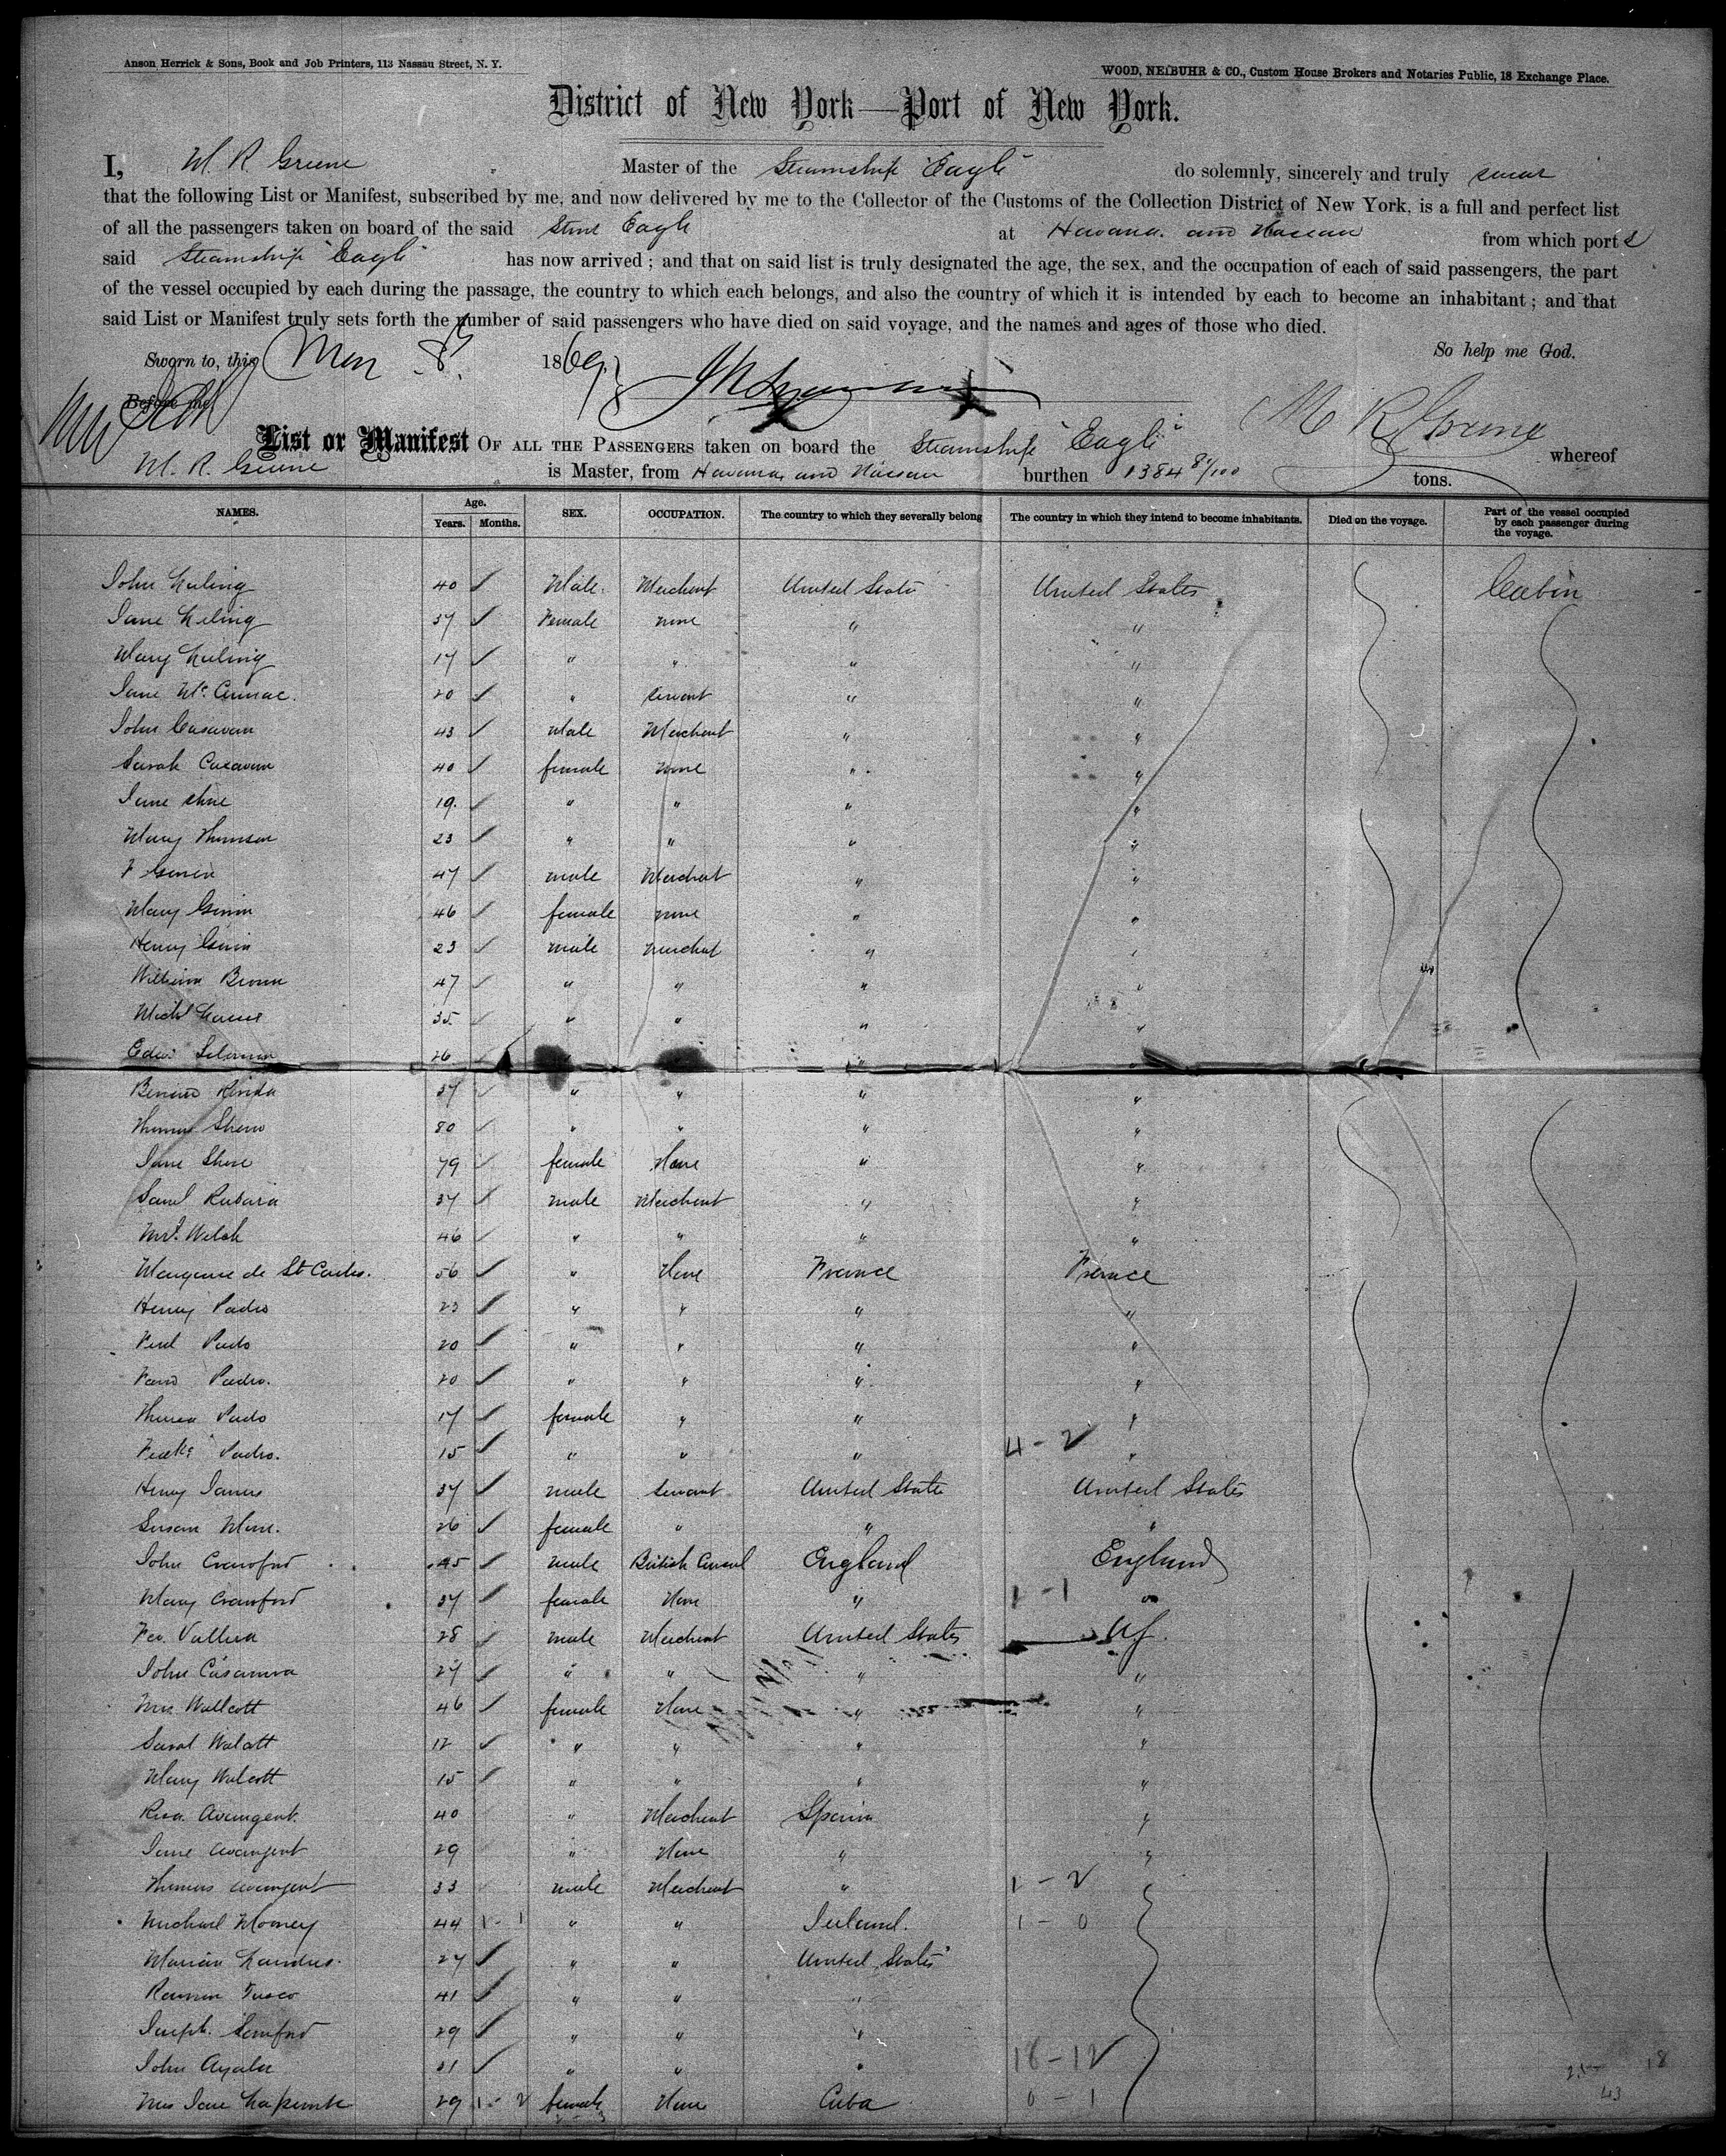 Anson Herrick & Sons, Book and Job Printers, 113 Nassau Street, N. Y.
WOOD, NEIBUHR & CO., Custom House Brokers and Notaries Public, 18 Exchange Place.
District of New York—Port of New York.
I, M. R. Greene Master of the Steamship "Eagle" do solemnly, sincerely and truly swear
that the following List or Manifest, subscribed by me, and now delivered by me to the Collector of the Customs of the Collection District of New York, is a full and perfect list
of all the passengers taken on board of the said Stme Eagle at Havana and Nassau from which ports
said Steamship "Eagle" has now arrived; and that on said list is truly designated the age, the sex, and the occupation of each of said passengers, the part
of the vessel occupied by each during the passage, the country to which each belongs, and also the country of which it is intended by each to become an inhabitant; and that
said List or Manifest truly sets forth the number of said passengers who have died on said voyage, and the names and ages of those who died.
Sworn to, this Mar 8 1869 So help me God.
Before me M R Greene
List or Manifest OF ALL THE PASSENGERS taken on board the Steamship "Eagle" whereof
M. R. Greene is Master, from Havana and Nassau burthen 1384 81/100 tons.
NAMES. Age. Years. Months. SEX. OCCUPATION. The country to which they severally belong The country in which they intend to become inhabitants. Died on the voyage. Part of the vessel occupied by each passenger during the voyage.
John Luling 40 Male Merchant United States United States Cabin
Jane Luling 37 Female none " "
Mary Luling 17 " " " "
Jane 20 " servant " "
John Casavan 43 Male Merchant " "
Sarah Casavan 40 female none " "
Jane 19 " " " "
Mary 23 " " " "
F 47 male Merchant " "
Mary 46 female none " "
Henry 23 male merchant " "
William Brown 47 " " " "
Michl 35 " " " "
26
37 " " " "
Thomas 80 " " " "
Jane 79 female None " "
Saml 37 male Merchant " "
Welsh 46 " " " "
de St Carlos. 56 " None France France
Henry Padro 23 " " " "
Ferd Padro 20 " " " "
Padro. 20 " " " "
Theresa Padro 17 female " " "
Padro. 15 " " " 4 - 2 "
Henry James 37 male servant United States United States
Susan 26 female " " "
John Crawford 45 male British Consul England England
Mary Crawford 37 female None " 1 - 1 "
28 male Merchant United States
John Casanova 27 " " " "
Mrs Wallcott 46 female None " "
Sarah Walcott 12 " " " "
Mary Walcott 15 " " " "
Rosa 40 " Merchant Spain "
Jane 29 " None " "
Thomas 33 male Merchant " 1 - 2
Michael Mooney 44 1 - 1 " " Ireland. 1 - 0
27 " " United States
Ramon 41 " " "
Joseph 29 " " "
John Ayala 31 " " " 18 - 12
Mrs Jane 29 1 - 2 female None Cuba 0 - 1
25 18
43